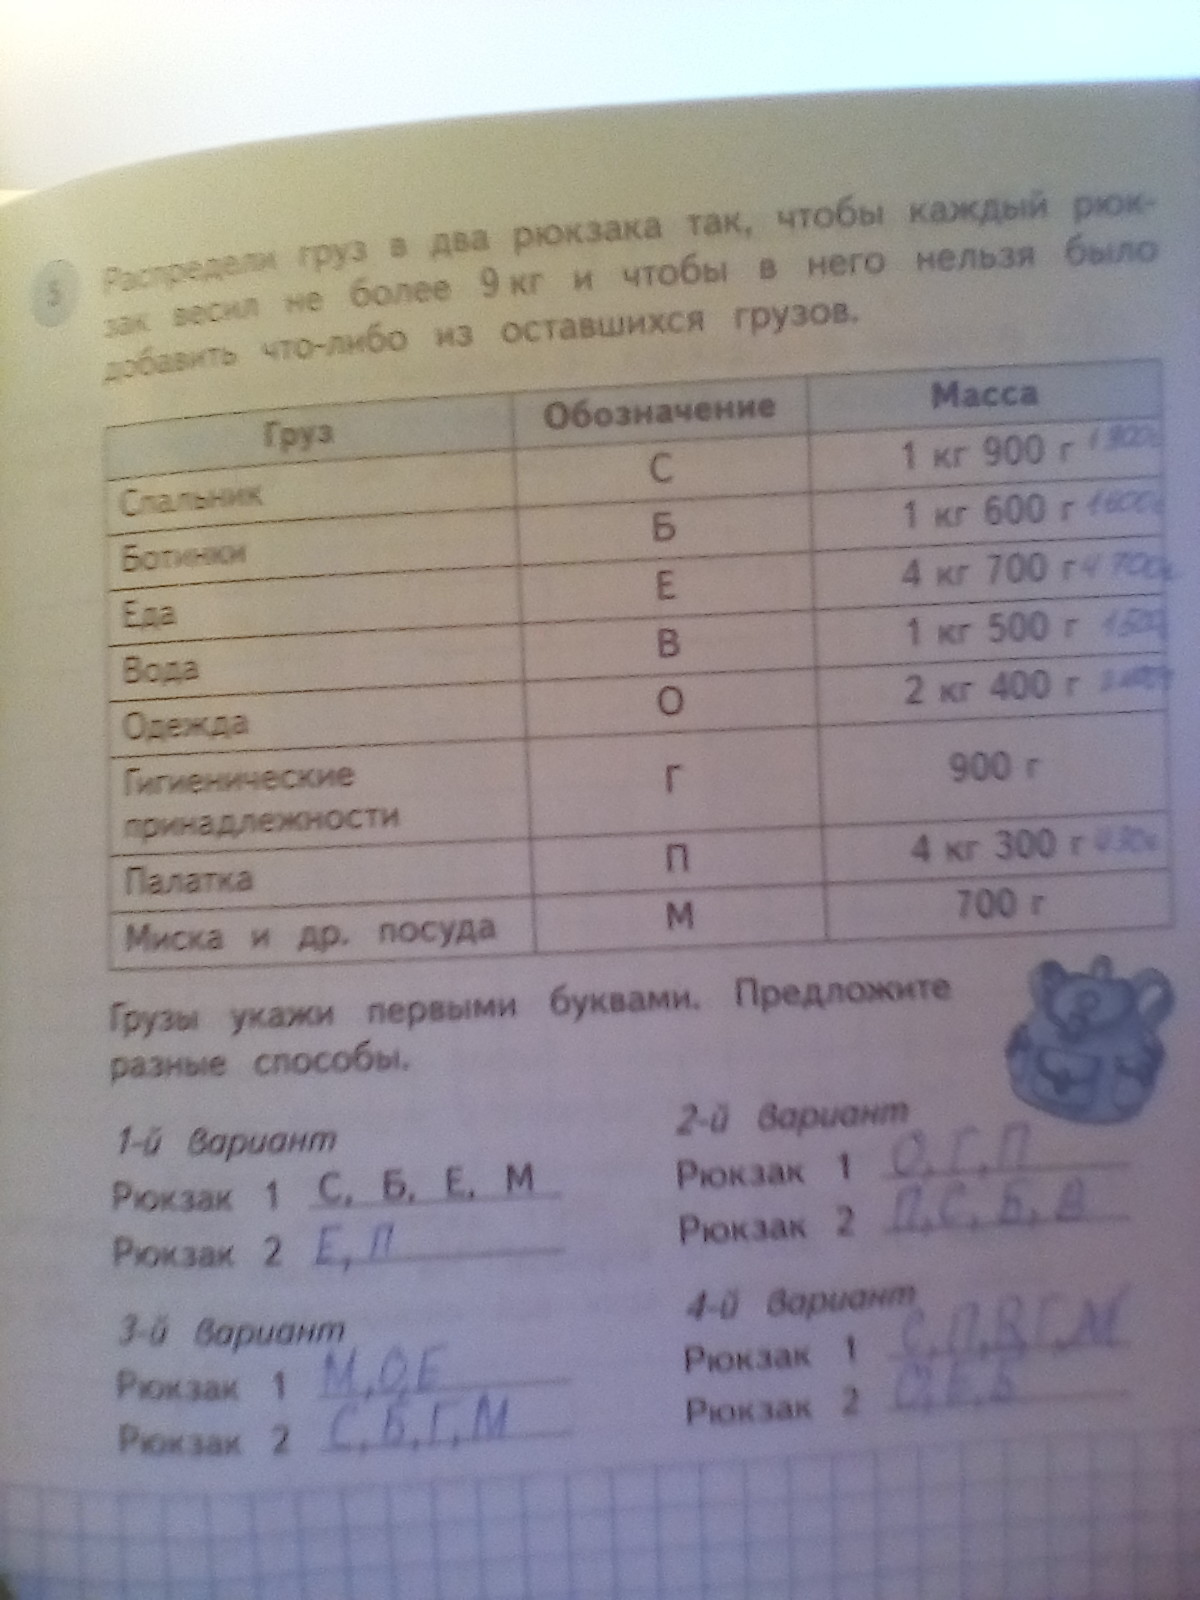 5
Распредели груз в два рюкзака так, чтобы каждый рюк-
зак весил не более 9 кг и чтобы в него нельзя было
добавить что-либо из оставшихся грузов.
Груз Обозначение Масса
Спальник С 1 кг 900 г
Ботинки Б 1 кг 600 г
Еда Е 4 кг 700 г 4 700
Вода В 1 кг 500 г 1500
Одежда О 2 кг 400 г
Гигиенические принадлежности Г 900 г
Палатка П 4 кг 300 г
Миска и др. посуда М 700 г
Грузы укажи первыми буквами. Предложите
разные способы.
1-й вариант
Рюкзак 1 С, Б, Е, М
Рюкзак 2 Е, П
2-й вариант
Рюкзак 1 О, Г, П
Рюкзак 2 П, С, Б, В
3-й вариант
Рюкзак 1 М, О, Е
Рюкзак 2 С, Б, Г, М
4-й вариант
Рюкзак 1 С, П, В, Г, М
Рюкзак 2 О, Е, Б